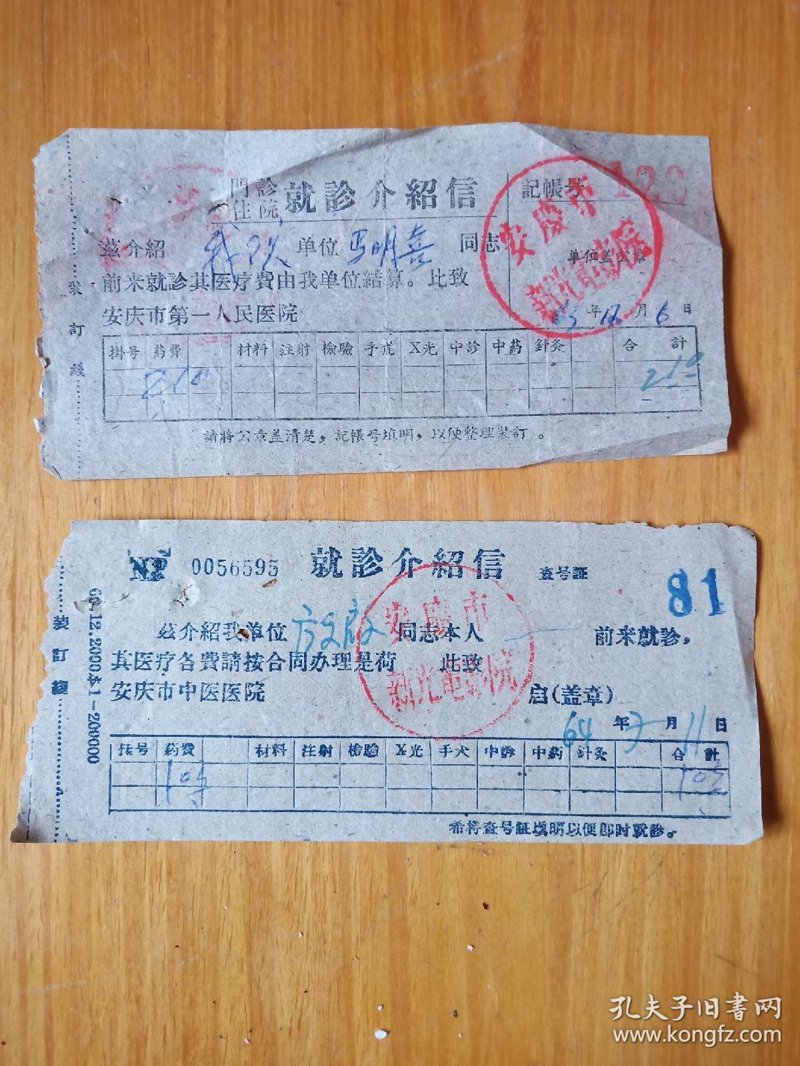 門診
住院
就診介紹信
記帳号
129
茲介紹 单位 馬明喜 同志
前来就診其医疗費由我单位結算。此致
安庆市第一人民医院
单位盖公章
安慶市
新光電影院
63年12月6日
裝訂綫
掛号 药費 材料 注射 檢驗 手术 X光 中診 中药 針灸 合計
210 210
請将公章盖清楚，記帳号填明，以便整理裝訂。
№ 0056595 就診介紹信 查号証 81
茲介紹我单位 同志本人 前来就診，
其医疗各費請按合同办理是荷 此致
安庆市中医医院 启(盖章)
安慶市
新光電影院
64年3月11日
裝訂綫
挂号 药費 材料 注射 检驗 X光 手术 中診 中药 針灸 合計
希将查号証填明以便即时就診。
孔夫子旧书网
www.kongfz.com